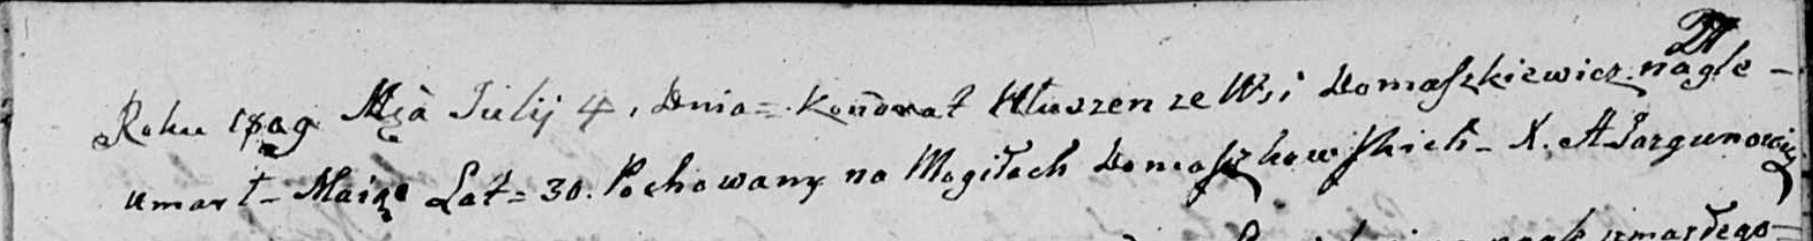 Roku 1809 Mca Julij 4, Dnia = Kondrat Hłuszen ze Wsi Domaszkiewicz nagle -
umarł - Maiąc Lat = 30. Pochowany na Mogiłach Domaszkowskich - X. A Jazgunowicz
nagle zmarłego -